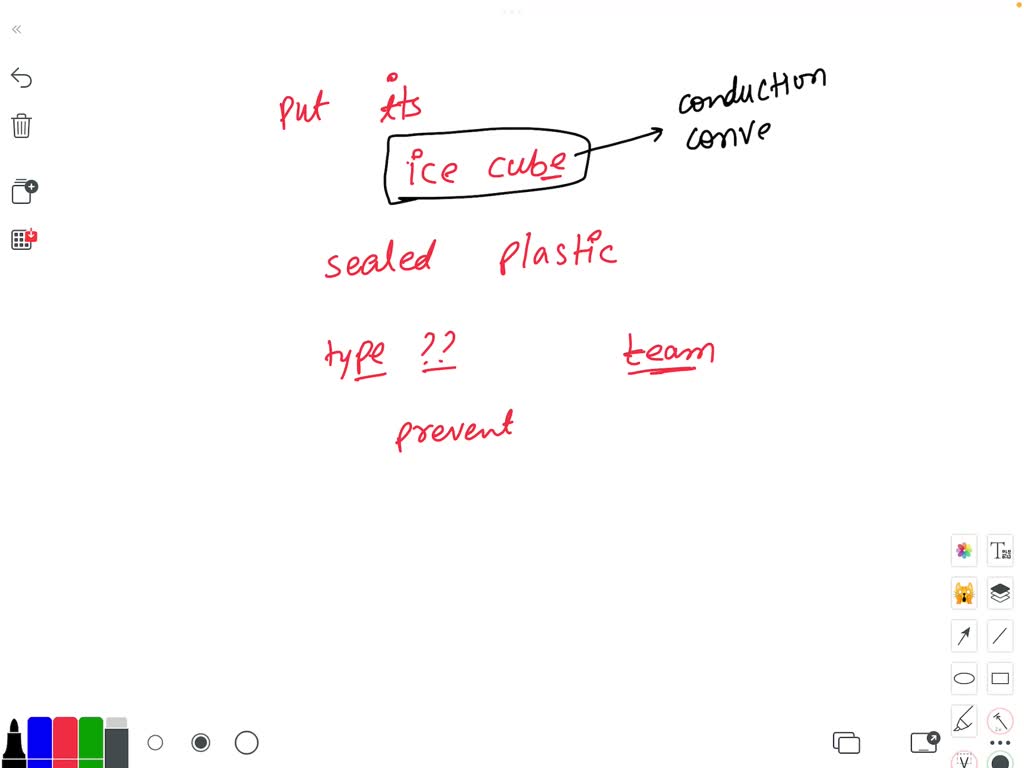 put its
ice cube
conduction
conve
sealed plastic
type ?? team
prevent